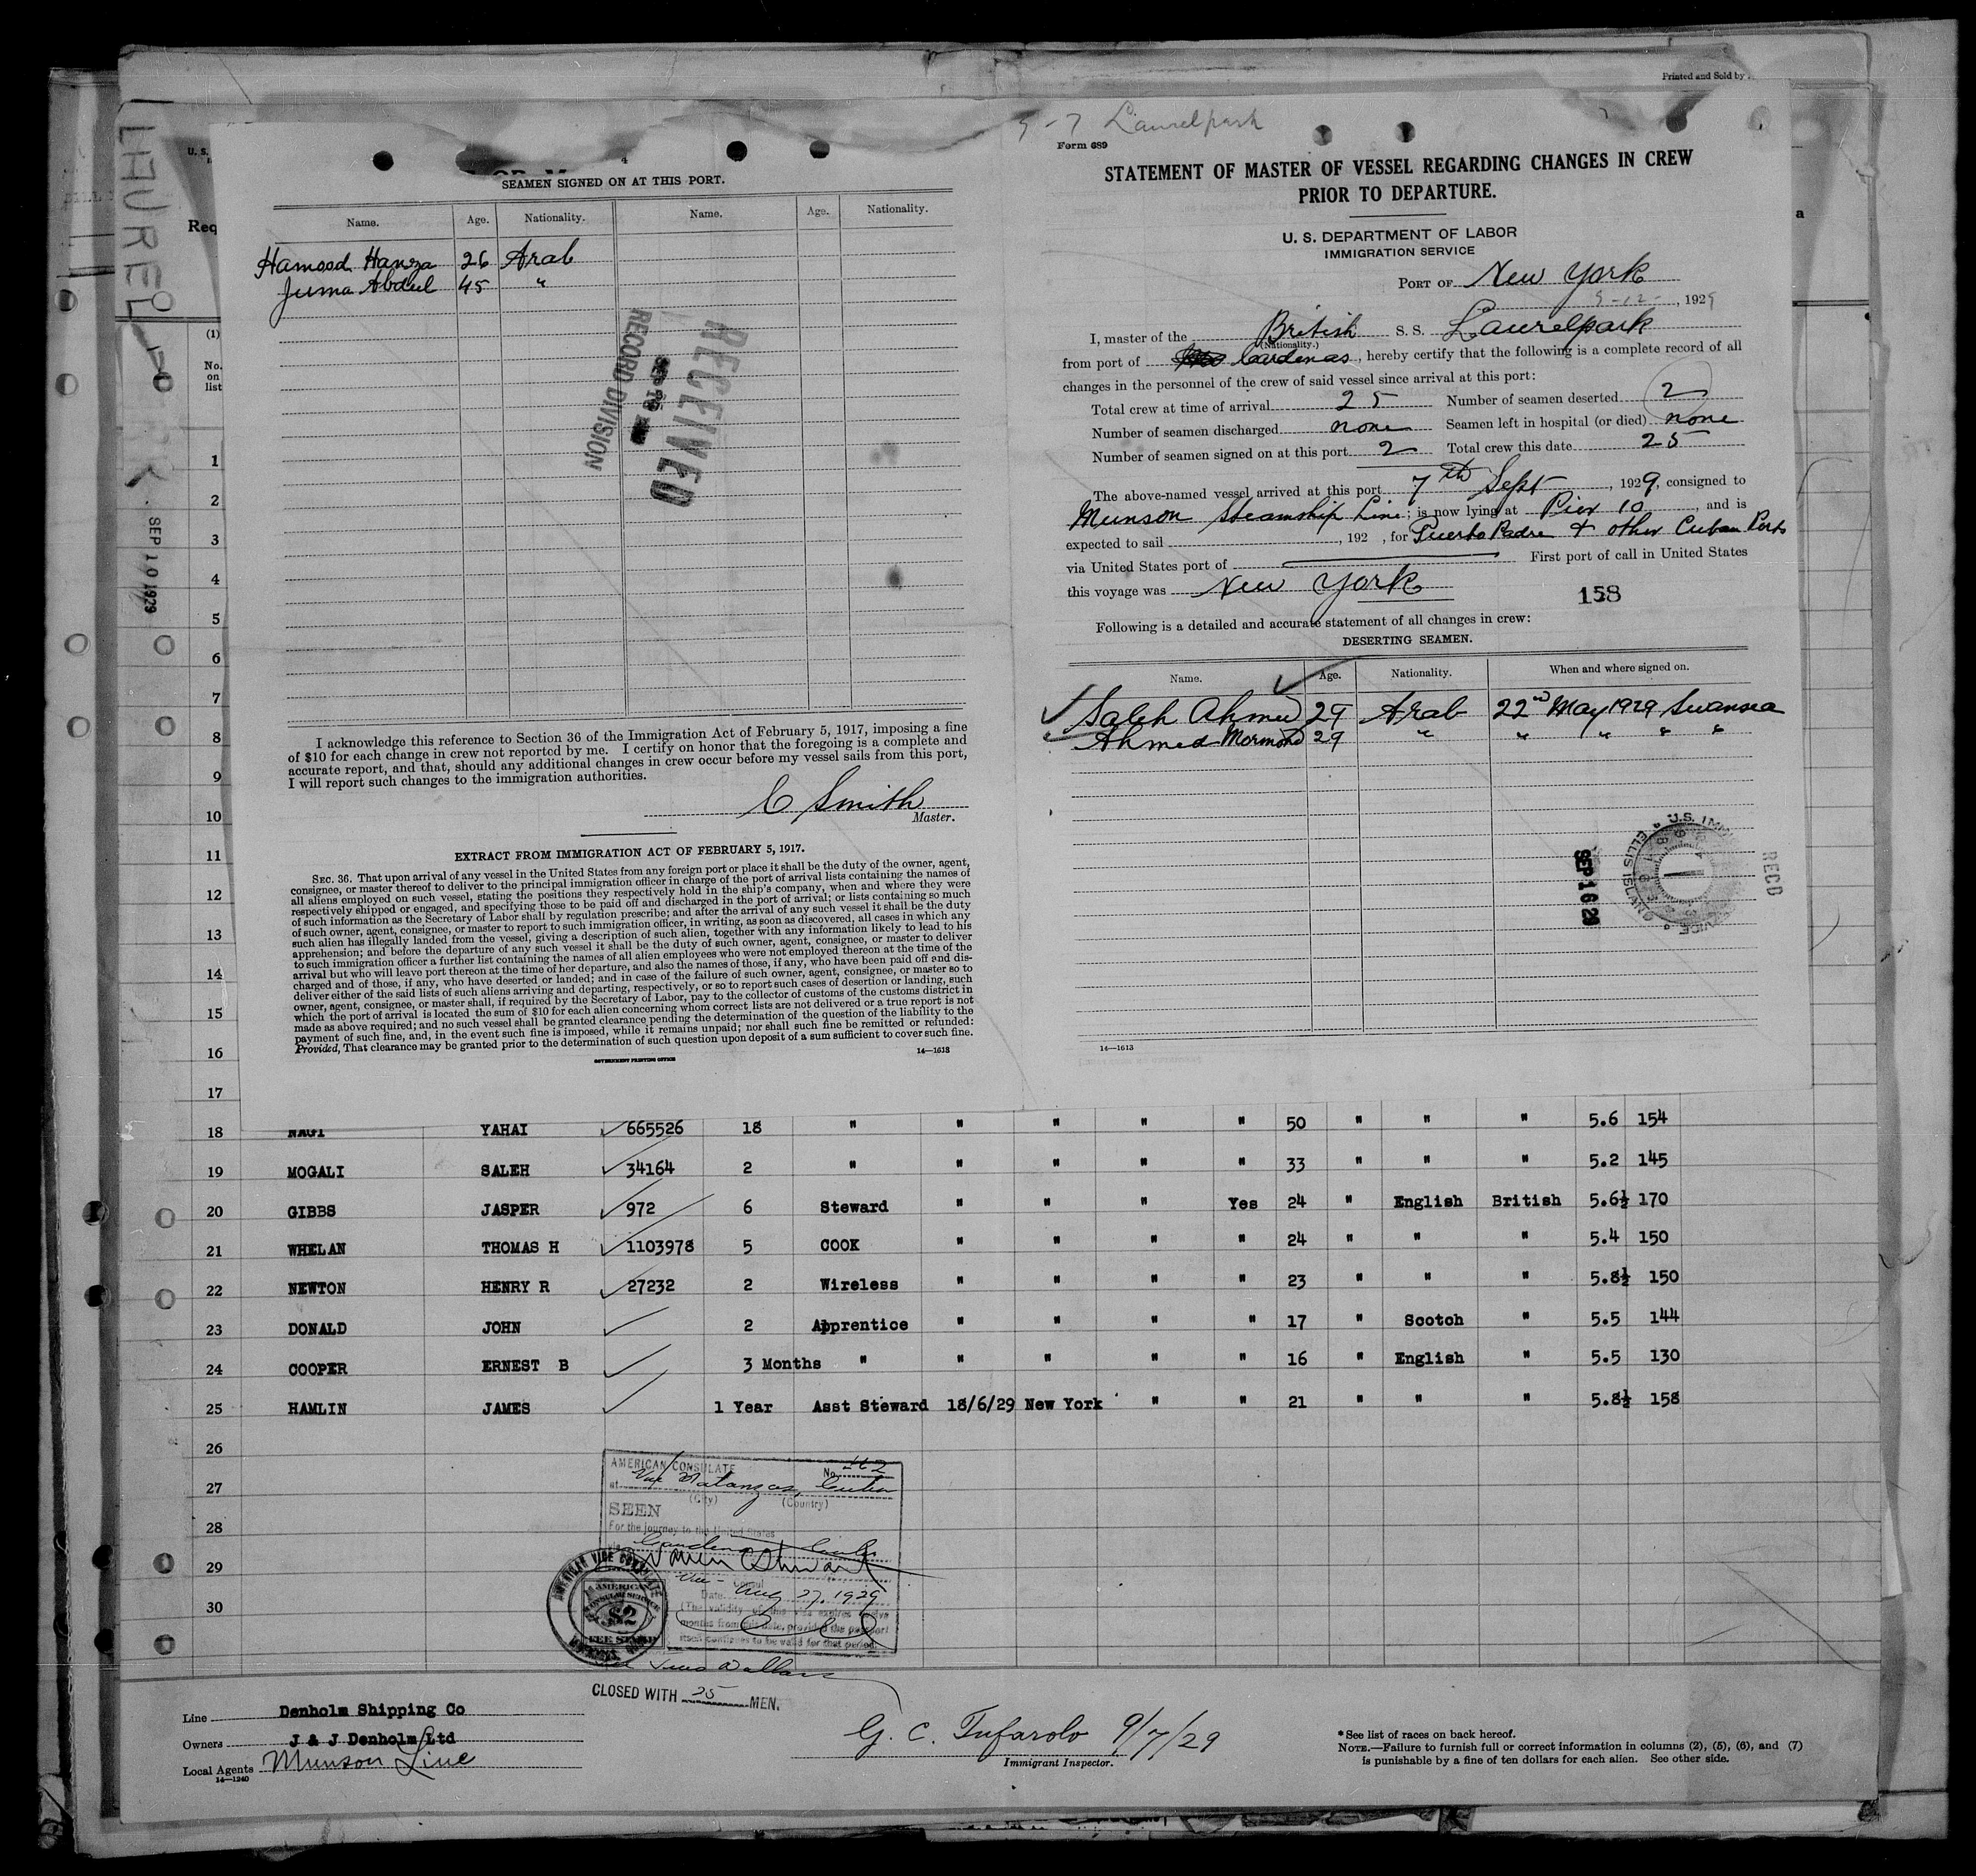 Printed and Sold by
9-7 Laurelpark
LAUREL PARK
SEP 10 1929
U. S.
Req
a
(1)
No. on list
4
SEAMEN SIGNED ON AT THIS PORT.
Name. Age. Nationality. Name. Age. Nationality.
Hamood Hamza 26 Arab
Juma Abdul 45 "
RECEIVED
SEP 18
RECORD DIVISION
I acknowledge this reference to Section 36 of the Immigration Act of February 5, 1917, imposing a fine
of $10 for each change in crew not reported by me. I certify on honor that the foregoing is a complete and
accurate report, and that, should any additional changes in crew occur before my vessel sails from this port,
I will report such changes to the immigration authorities.
C Smith
Master.
EXTRACT FROM IMMIGRATION ACT OF FEBRUARY 5, 1917.
SEC. 36. That upon arrival of any vessel in the United States from any foreign port or place it shall be the duty of the owner, agent,
consignee, or master thereof to deliver to the principal immigration officer in charge of the port of arrival lists containing the names of
all aliens employed on such vessel, stating the positions they respectively hold in the ship's company, when and where they were
respectively shipped or engaged, and specifying those to be paid off and discharged in the port of arrival; or lists containing so much
of such information as the Secretary of Labor shall by regulation prescribe; and after the arrival of any such vessel it shall be the duty
of such owner, agent, consignee, or master to report to such immigration officer, in writing, as soon as discovered, all cases in which any
such alien has illegally landed from the vessel, giving a description of such alien, together with any information likely to lead to his
apprehension; and before the departure of any such vessel it shall be the duty of such owner, agent, consignee, or master to deliver
to such immigration officer a further list containing the names of all alien employees who were not employed thereon at the time of the
arrival but who will leave port thereon at the time of her departure, and also the names of those, if any, who have been paid off and dis-
charged and of those, if any, who have deserted or landed; and in case of the failure of such owner, agent, consignee, or master so to
deliver either of the said lists of such aliens arriving and departing, respectively, or so to report such cases of desertion or landing, such
owner, agent, consignee, or master shall, if required by the Secretary of Labor, pay to the collector of customs of the customs district in
which the port of arrival is located the sum of $10 for each alien concerning whom correct lists are not delivered or a true report is not
made as above required; and no such vessel shall be granted clearance pending the determination of the question of the liability to the
payment of such fine, and, in the event such fine is imposed, while it remains unpaid; nor shall such fine be remitted or refunded:
Provided, That clearance may be granted prior to the determination of such question upon deposit of a sum sufficient to cover such fine.
GOVERNMENT PRINTING OFFICE 14—1613
Form 689
STATEMENT OF MASTER OF VESSEL REGARDING CHANGES IN CREW
PRIOR TO DEPARTURE.
U. S. DEPARTMENT OF LABOR
IMMIGRATION SERVICE
PORT OF New York
9-12-, 1929
I, master of the British S. S. Laurelpark
(Nationality.)
from port of Cardenas, hereby certify that the following is a complete record of all
changes in the personnel of the crew of said vessel since arrival at this port:
Total crew at time of arrival 25 Number of seamen deserted 2
Number of seamen discharged none Seamen left in hospital (or died) none
Number of seamen signed on at this port 2 Total crew this date 25
The above-named vessel arrived at this port 7th Sept, 1929, consigned to
Munson Steamship Line; is now lying at Pier 10, and is
expected to sail , 192 , for Puerto Padre & other Cuban Ports
via United States port of First port of call in United States
this voyage was New York
158
Following is a detailed and accurate statement of all changes in crew:
DESERTING SEAMEN.
Name. Age. Nationality. When and where signed on.
Saleh Ahmed 29 Arab 22nd May 1929 Swansea
Ahmed Mormond 29 " " " " "
U.S. IMM
ELLIS ISLAND
SEP 16 29
RECD
14—1613
1
2
3
4
5
6
7
8
9
10
11
12
13
14
15
16
17
18 NAGI YAHAI 665526 18 " " " " " 50 " " " 5.6 154
19 MOGALI SALEH 34164 2 " " " " " 33 " " " 5.2 145
20 GIBBS JASPER 972 6 Steward " " " Yes 24 " English British 5.6½ 170
21 WHELAN THOMAS H 1103978 5 COOK " " " " 24 " " " 5.4 150
22 NEWTON HENRY R 27232 2 Wireless " " " " 23 " " " 5.8½ 150
23 DONALD JOHN 2 Apprentice " " " " 17 " Scotch " 5.5 144
24 COOPER ERNEST B 3 Months " " " " " 16 " English " 5.5 130
25 HAMLIN JAMES 1 Year Asst Steward 18/6/29 New York " " 21 " " " 5.8½ 158
26
27
28
29
30
AMERICAN CONSULATE No.
at Matanzas, Cuba
(City) (Country)
SEEN
For the journey to the United States
Date Aug 27, 1929
(The validity of this visa expires twelve
months from this date, provided the passport
itself continues to be valid for that period.
AMERICAN VICE CONSULATE
AMERICAN
CONSULAR SERVICE
$2
FEE STAMP
Two Dollars
CLOSED WITH 25 MEN.
Line Denholm Shipping Co
Owners J & J Denholm Ltd
Local Agents Munson Line
14—1240
G. C. Tufarolo 9/7/29
Immigrant Inspector.
* See list of races on back hereof.
NOTE.—Failure to furnish full or correct information in columns (2), (5), (6), and (7)
is punishable by a fine of ten dollars for each alien. See other side.